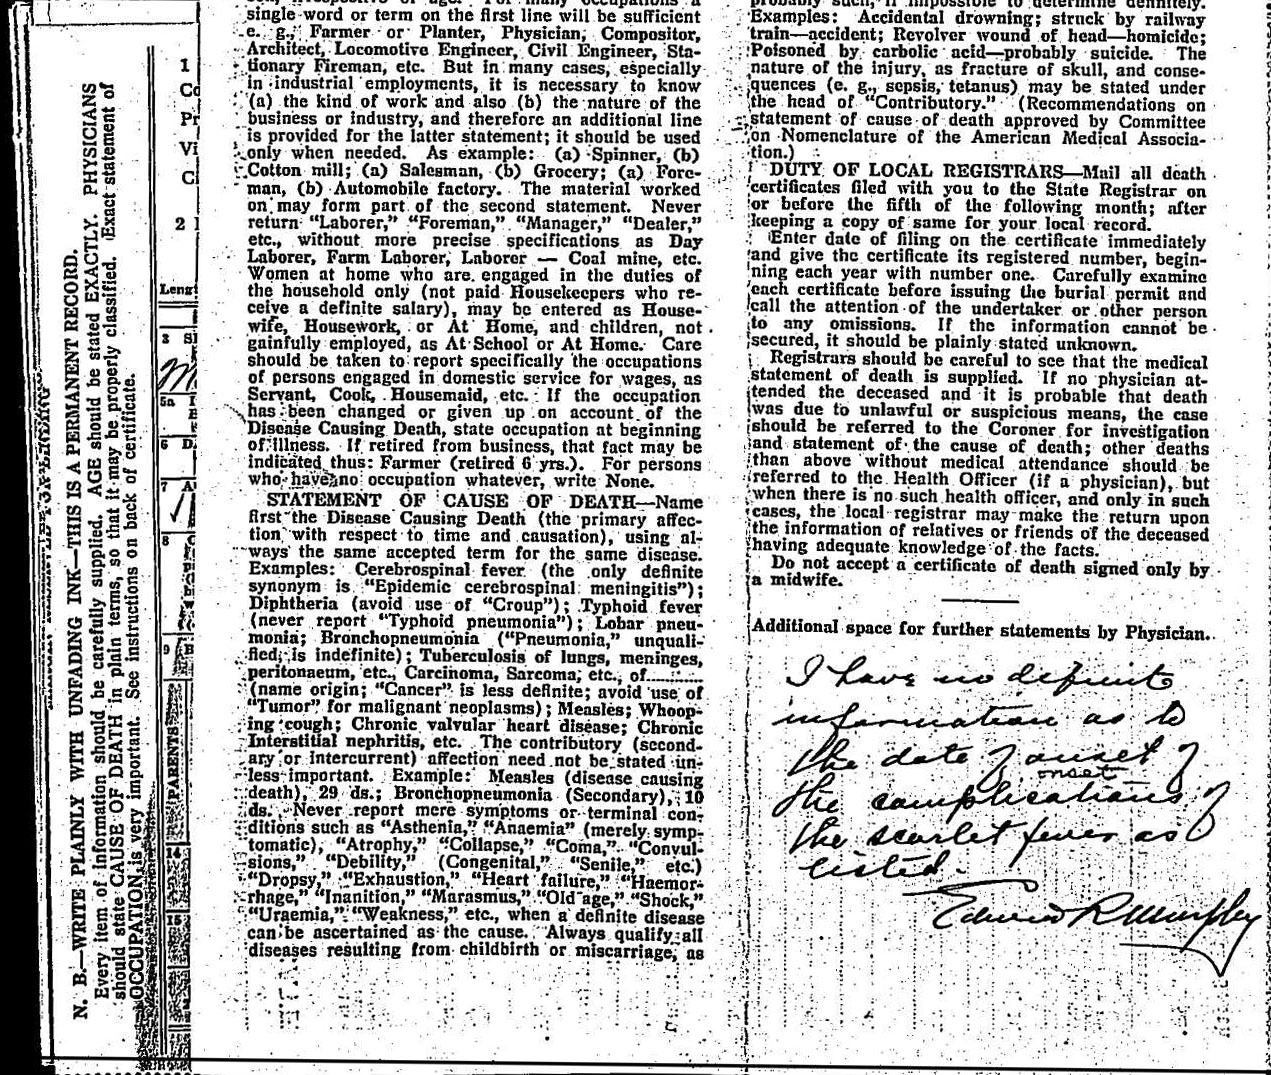 N. B.—WRITE PLAINLY WITH UNFADING INK—THIS IS A PERMANENT RECORD.
Every item of information should be carefully supplied. AGE should be stated EXACTLY. PHYSICIANS
should state CAUSE OF DEATH in plain terms, so that it may be properly classified. Exact statement of
OCCUPATION is very important. See instructions on back of certificate.
1
Co
Pr
Vi
C
2
Lengt
3 S
5a
6 D
7 A
8
9 B
PARENTS
14
15
single word or term on the first line will be sufficient
e. g., Farmer or Planter, Physician, Compositor,
Architect, Locomotive Engineer, Civil Engineer, Sta-
tionary Fireman, etc. But in many cases, especially
in industrial employments, it is necessary to know
(a) the kind of work and also (b) the nature of the
business or industry, and therefore an additional line
is provided for the latter statement; it should be used
only when needed. As example: (a) Spinner, (b)
Cotton mill; (a) Salesman, (b) Grocery; (a) Fore-
man, (b) Automobile factory. The material worked
on may form part of the second statement. Never
return "Laborer," "Foreman," "Manager," "Dealer,"
etc., without more precise specifications as Day
Laborer, Farm Laborer, Laborer — Coal mine, etc.
Women at home who are engaged in the duties of
the household only (not paid Housekeepers who re-
ceive a definite salary), may be entered as House-
wife, Housework, or At Home, and children, not
gainfully employed, as At School or At Home. Care
should be taken to report specifically the occupations
of persons engaged in domestic service for wages, as
Servant, Cook, Housemaid, etc. If the occupation
has been changed or given up on account of the
Disease Causing Death, state occupation at beginning
of illness. If retired from business, that fact may be
indicated thus: Farmer (retired 6 yrs.). For persons
who have no occupation whatever, write None.
STATEMENT OF CAUSE OF DEATH—Name
first the Disease Causing Death (the primary affec-
tion with respect to time and causation), using al-
ways the same accepted term for the same disease.
Examples: Cerebrospinal fever (the only definite
synonym is "Epidemic cerebrospinal meningitis");
Diphtheria (avoid use of "Croup"); Typhoid fever
(never report "Typhoid pneumonia"); Lobar pneu-
monia; Bronchopneumonia ("Pneumonia," unquali-
fied, is indefinite); Tuberculosis of lungs, meninges,
peritonaeum, etc., Carcinoma, Sarcoma, etc., of..........
(name origin; "Cancer" is less definite; avoid use of
"Tumor" for malignant neoplasms); Measles; Whoop-
ing cough; Chronic valvular heart disease; Chronic
Interstitial nephritis, etc. The contributory (second-
ary or intercurrent) affection need not be stated un-
less important. Example: Measles (disease causing
death), 29 ds.; Bronchopneumonia (Secondary), 10
ds. Never report mere symptoms or terminal con-
ditions such as "Asthenia," "Anaemia" (merely symp-
tomatic), "Atrophy," "Collapse," "Coma," "Convul-
sions," "Debility," (Congenital," "Senile," etc.)
"Dropsy," "Exhaustion," "Heart failure," "Haemor-
rhage," "Inanition," "Marasmus," "Old age," "Shock,"
"Uraemia," "Weakness," etc., when a definite disease
can be ascertained as the cause. Always qualify all
diseases resulting from childbirth or miscarriage, as
probably such, if impossible to determine definitely.
Examples: Accidental drowning; struck by railway
train—accident; Revolver wound of head—homicide;
Poisoned by carbolic acid—probably suicide. The
nature of the injury, as fracture of skull, and conse-
quences (e. g., sepsis, tetanus) may be stated under
the head of "Contributory." (Recommendations on
statement of cause of death approved by Committee
on Nomenclature of the American Medical Associa-
tion.)
DUTY OF LOCAL REGISTRARS—Mail all death
certificates filed with you to the State Registrar on
or before the fifth of the following month; after
keeping a copy of same for your local record.
Enter date of filing on the certificate immediately
and give the certificate its registered number, begin-
ning each year with number one. Carefully examine
each certificate before issuing the burial permit and
call the attention of the undertaker or other person
to any omissions. If the information cannot be
secured, it should be plainly stated unknown.
Registrars should be careful to see that the medical
statement of death is supplied. If no physician at-
tended the deceased and it is probable that death
was due to unlawful or suspicious means, the case
should be referred to the Coroner for investigation
and statement of the cause of death; other deaths
than above without medical attendance should be
referred to the Health Officer (if a physician), but
when there is no such health officer, and only in such
cases, the local registrar may make the return upon
the information of relatives or friends of the deceased
having adequate knowledge of the facts.
Do not accept a certificate of death signed only by
a midwife.
Additional space for further statements by Physician.
I have no definite
information as to
the date of onset of
onset
the complications of
the scarlet fever as
listed.
Edward R Murphy